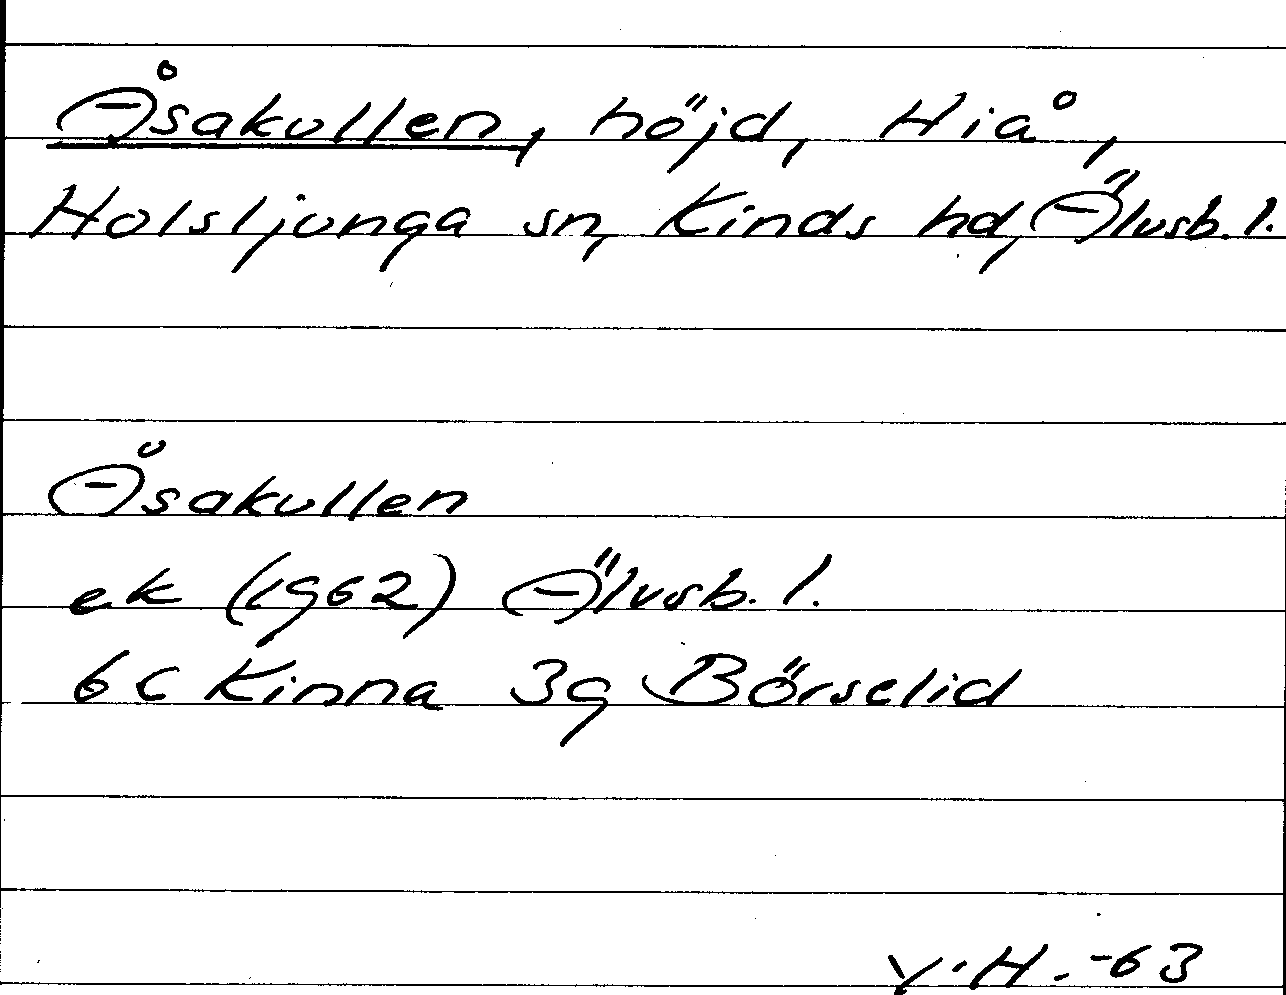 Åsakullen, höjd, Hiå,
Holsljunga sn, Kinds hd, Älvsb. l.
Åsakullen
ek (1962) Älvsb. l.
6C Kinna 3g Börselid
V.H. -63